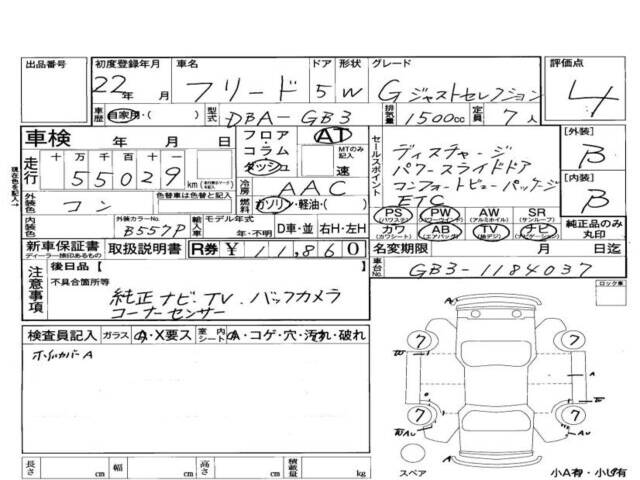 出品番号 初度登録年月 車名 ドア 形状 グレード 評価点
22年 月 フリード 5 W G ジャストセレクション 4
車歴 自家用・( ) 型式 DBA-GB3 排気量 1500cc 定員 7人
車検 年 月 日 フロア・コラム・ダッシュ AT MTのみ記入 速
セールスポイント ディスチャージ
パワースライドドア
コンフォートビューパッケージ
ETC
[外装] B
[内装] B
現在色を記入→
走行 十 万 千 百 十 一
55029 km
冷房 AAC
外装色 コン 色替車は色替色と記入 燃料 ガソリン・軽油・( )
PS (パワステ) PW (パワーウインド) AW (アルミホイル) SR (サンルーフ)
カワ (カワシート) AB (エアバッグ) TV ナビ (ナビゲーション)
純正品のみ丸印
内装色 外装カラーNo. B557P 輸入車 モデル年式 年・不明 D車・並 右H・左H
新車保証書 ディーラー捺印あるもの 取扱説明書 R券 ¥ 11,860 名変期限 月 日迄
後日品【 】 車台No. GB3-1184037
注意事項 不具合箇所等
純正ナビ・TV・バックカメラ
コーナーセンサー
ロック車
検査員記入 ガラス A・X要ス 室内シート A・コゲ・穴・汚れ・破れ
ホイルカバーA
7 7
A
7 7
スペア
小A有・小U有
長さ cm 幅 cm 高さ cm 積載量 kg